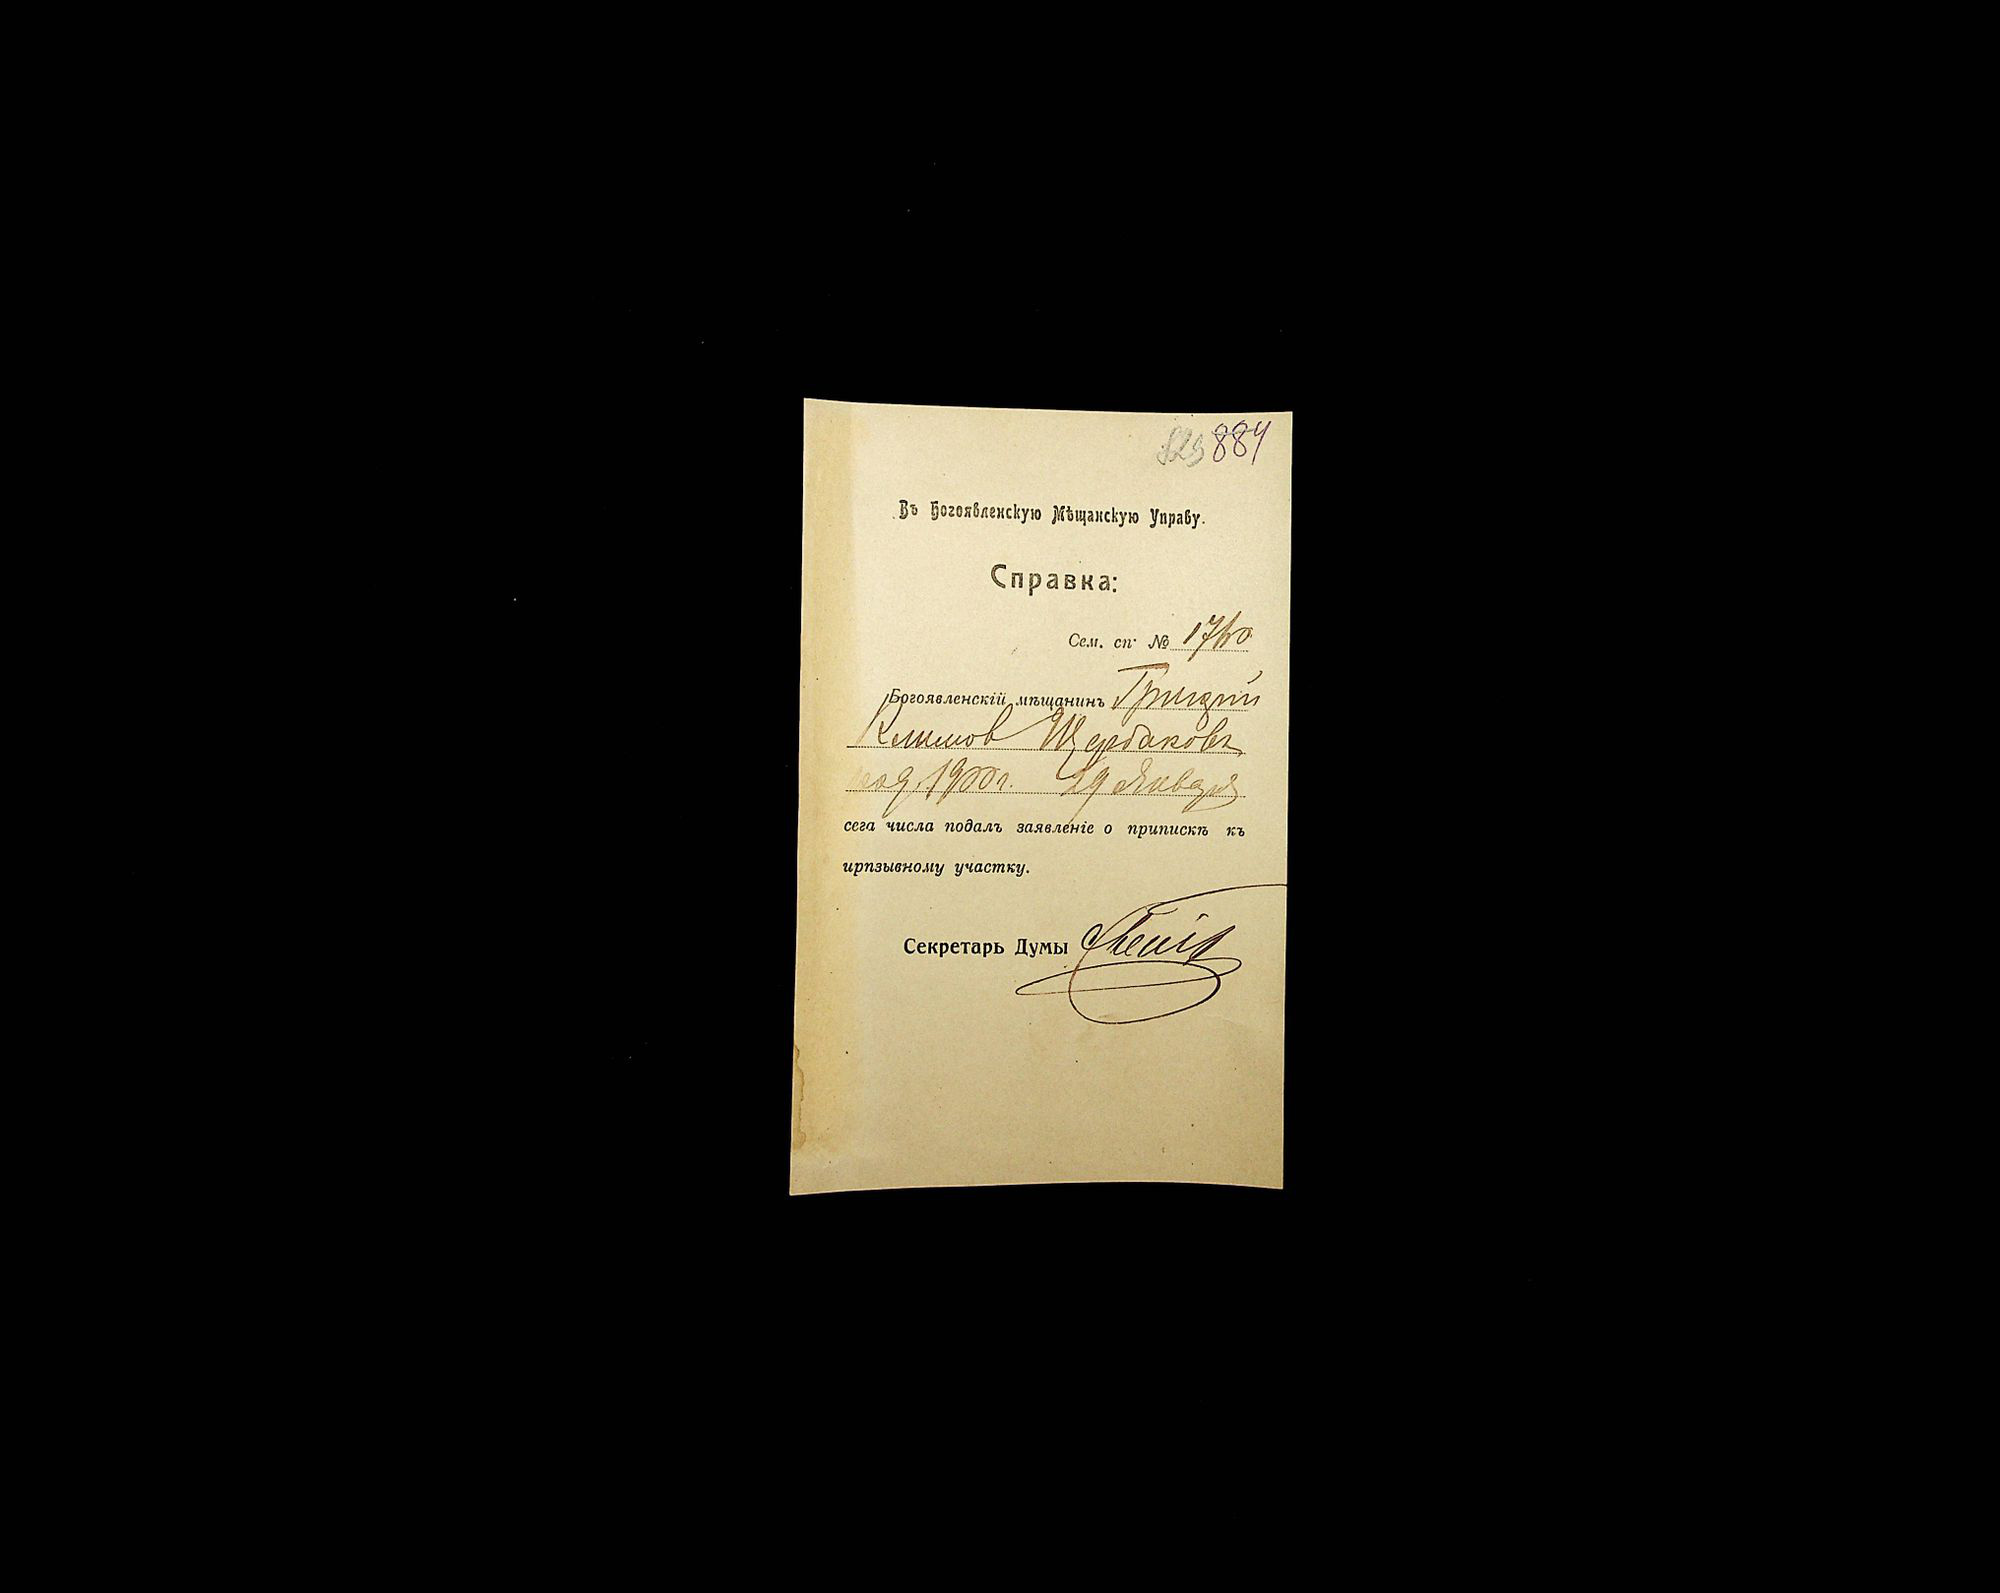 884
Въ Богоявленскую Мѣщанскую Управу.
Справка:
Сем. сп. №
Богоявленскій мѣщанинъ Григорій
Климов Щербаковъ
род. 1900 г. 29 Января
сега числа подалъ заявленіе о припискѣ къ
ирпзывному участку.
Секретарь Думы